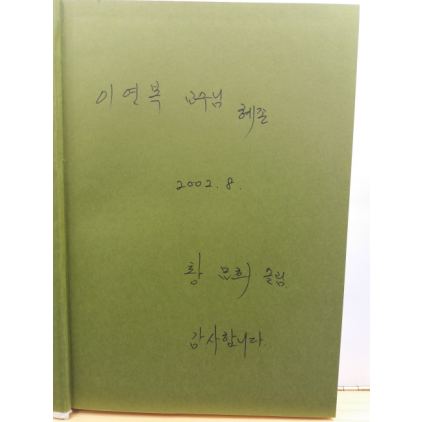 이연복 교수님 혜존
2002. 8.
황묘희 올림
감사합니다